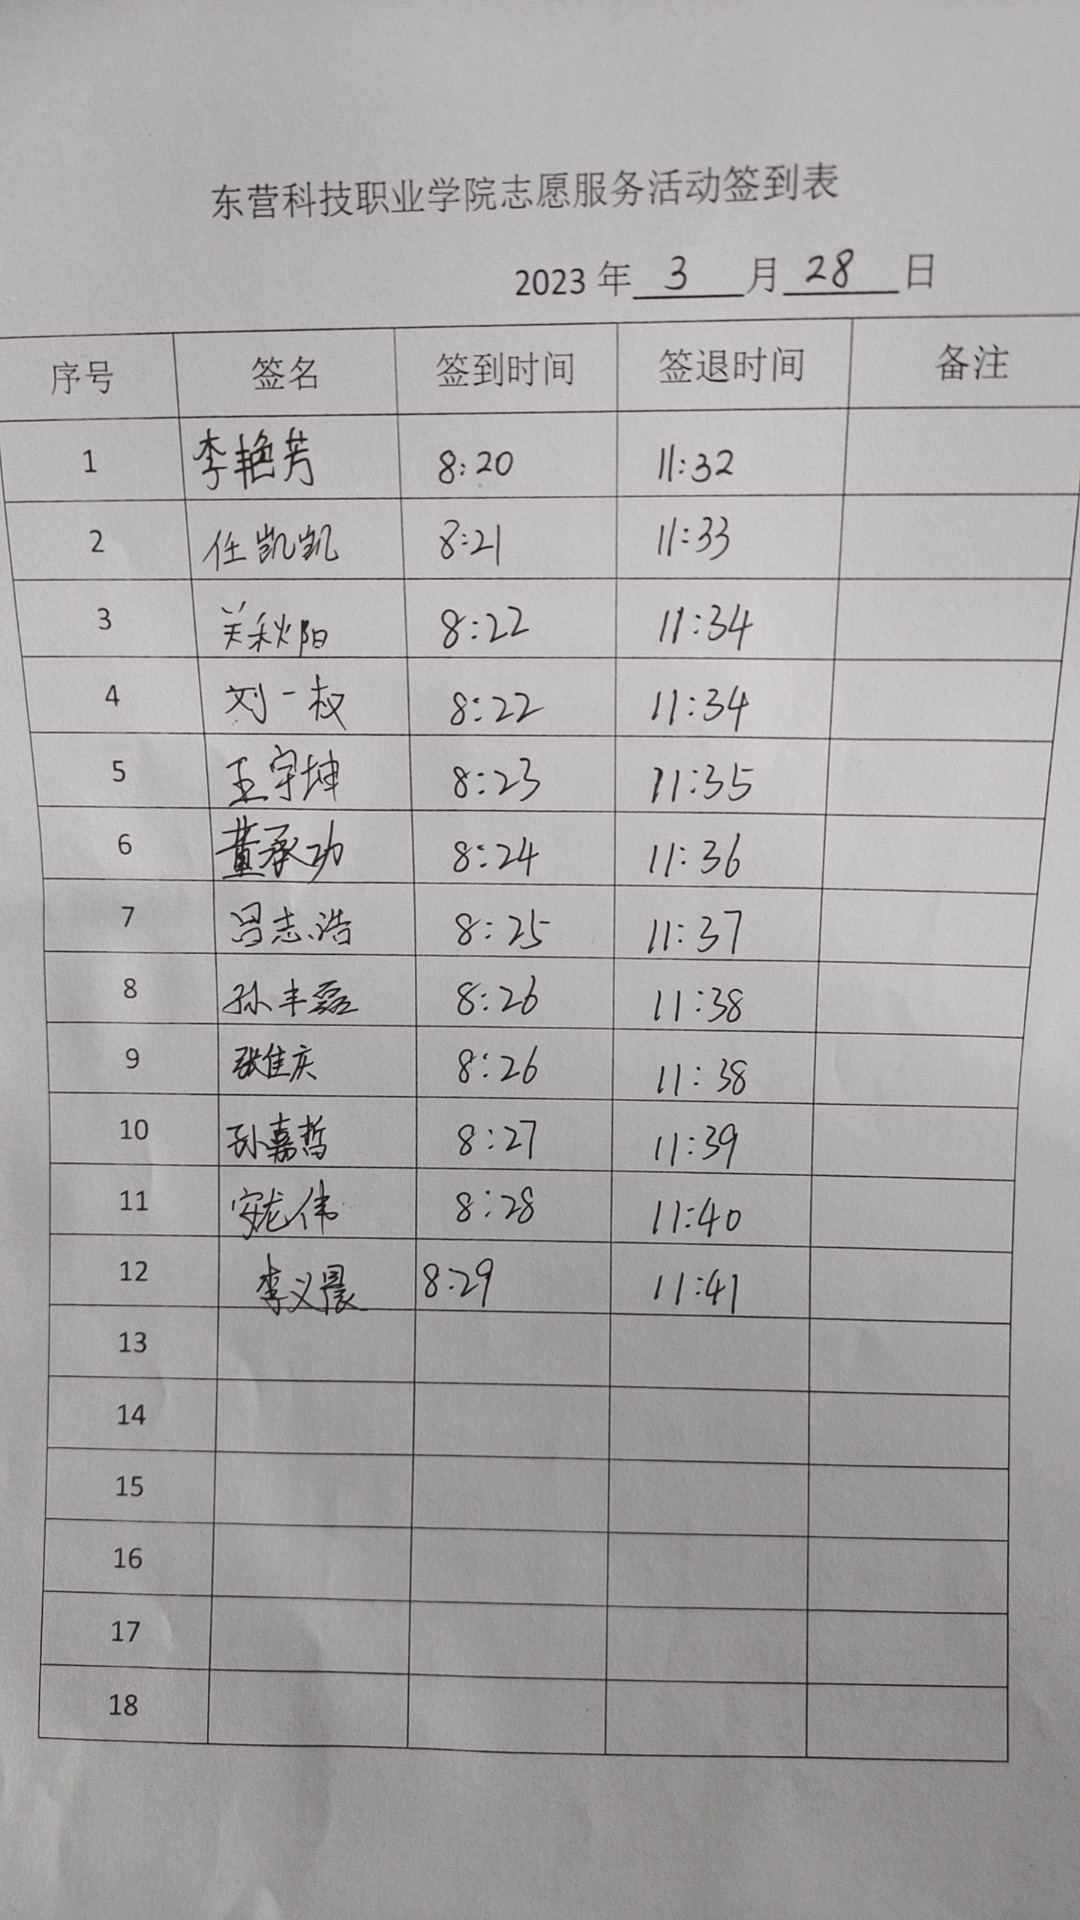 东营科技职业学院志愿服务活动签到表
2023 年 3 月 28 日
序号 签名 签到时间 签退时间 备注
1 李艳芳 8:20 11:32
2 任凯凯 8:21 11:33
3 关秋阳 8:22 11:34
4 刘一权 8:22 11:34
5 王宇坤 8:23 11:35
6 董承功 8:24 11:36
7 吕志浩 8:25 11:37
8 孙丰磊 8:26 11:38
9 张佳庆 8:26 11:38
10 孙嘉哲 8:27 11:39
11 安龙伟 8:28 11:40
12 李义晨 8:29 11:41
13
14
15
16
17
18